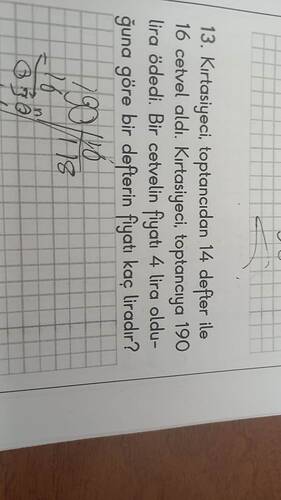 13. Kırtasiyeci, toptancıdan 14 defter ile
16 cetvel aldı. Kırtasiyeci, toptancıya 190
lira ödedi. Bir cetvelin fiyatı 4 lira oldu-
ğuna göre bir defterin fiyatı kaç liradır?
190 16
118
16
030